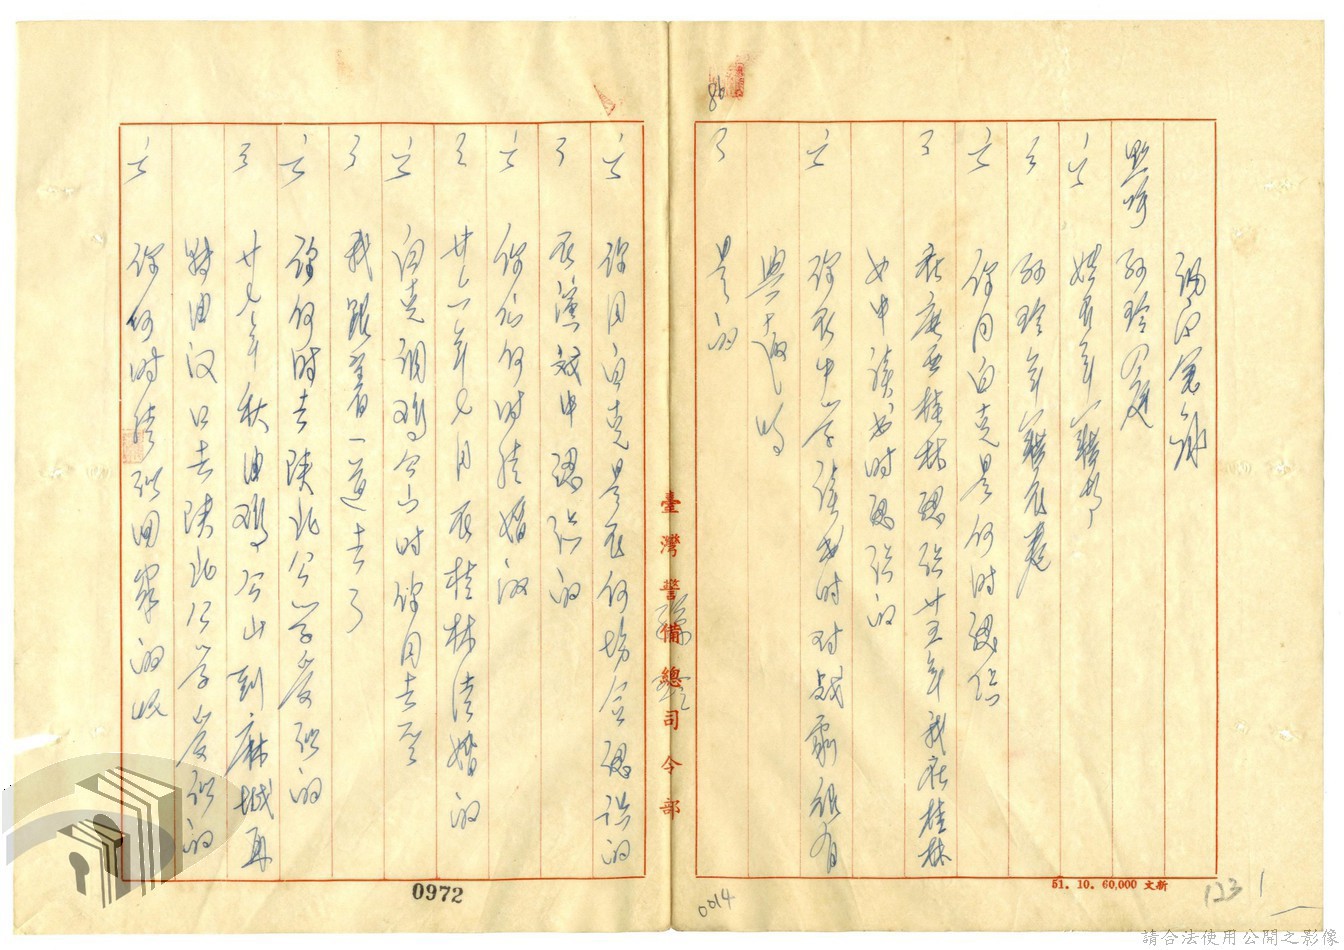 點呼 孫玲 入庭
問 姓名年籍等
答 孫玲年籍在卷
問 你同白克是何時認識
答 在廣西桂林認識廿五年我在桂林
女中讀書時認識的
問 你在中學讀書時對戲劇很有
興趣嗎
答 是的
問 你同白克是在何場合認識的
答 在演戲中認識的
問 你們何時結婚的
答 廿六年七月在桂林結婚的
問 白克調鷄公山時你同去否
答 我跟著一道去了
問 你何時去陝北公學受訓的
答 廿七年秋由鷄公山到麻城再
轉由漢口去陝北公學受訓的
問 你何時結訓回來的
臺灣警備總司令部
51. 10. 60,000 文新
0972
0014
123
86
請合法使用公開之影像